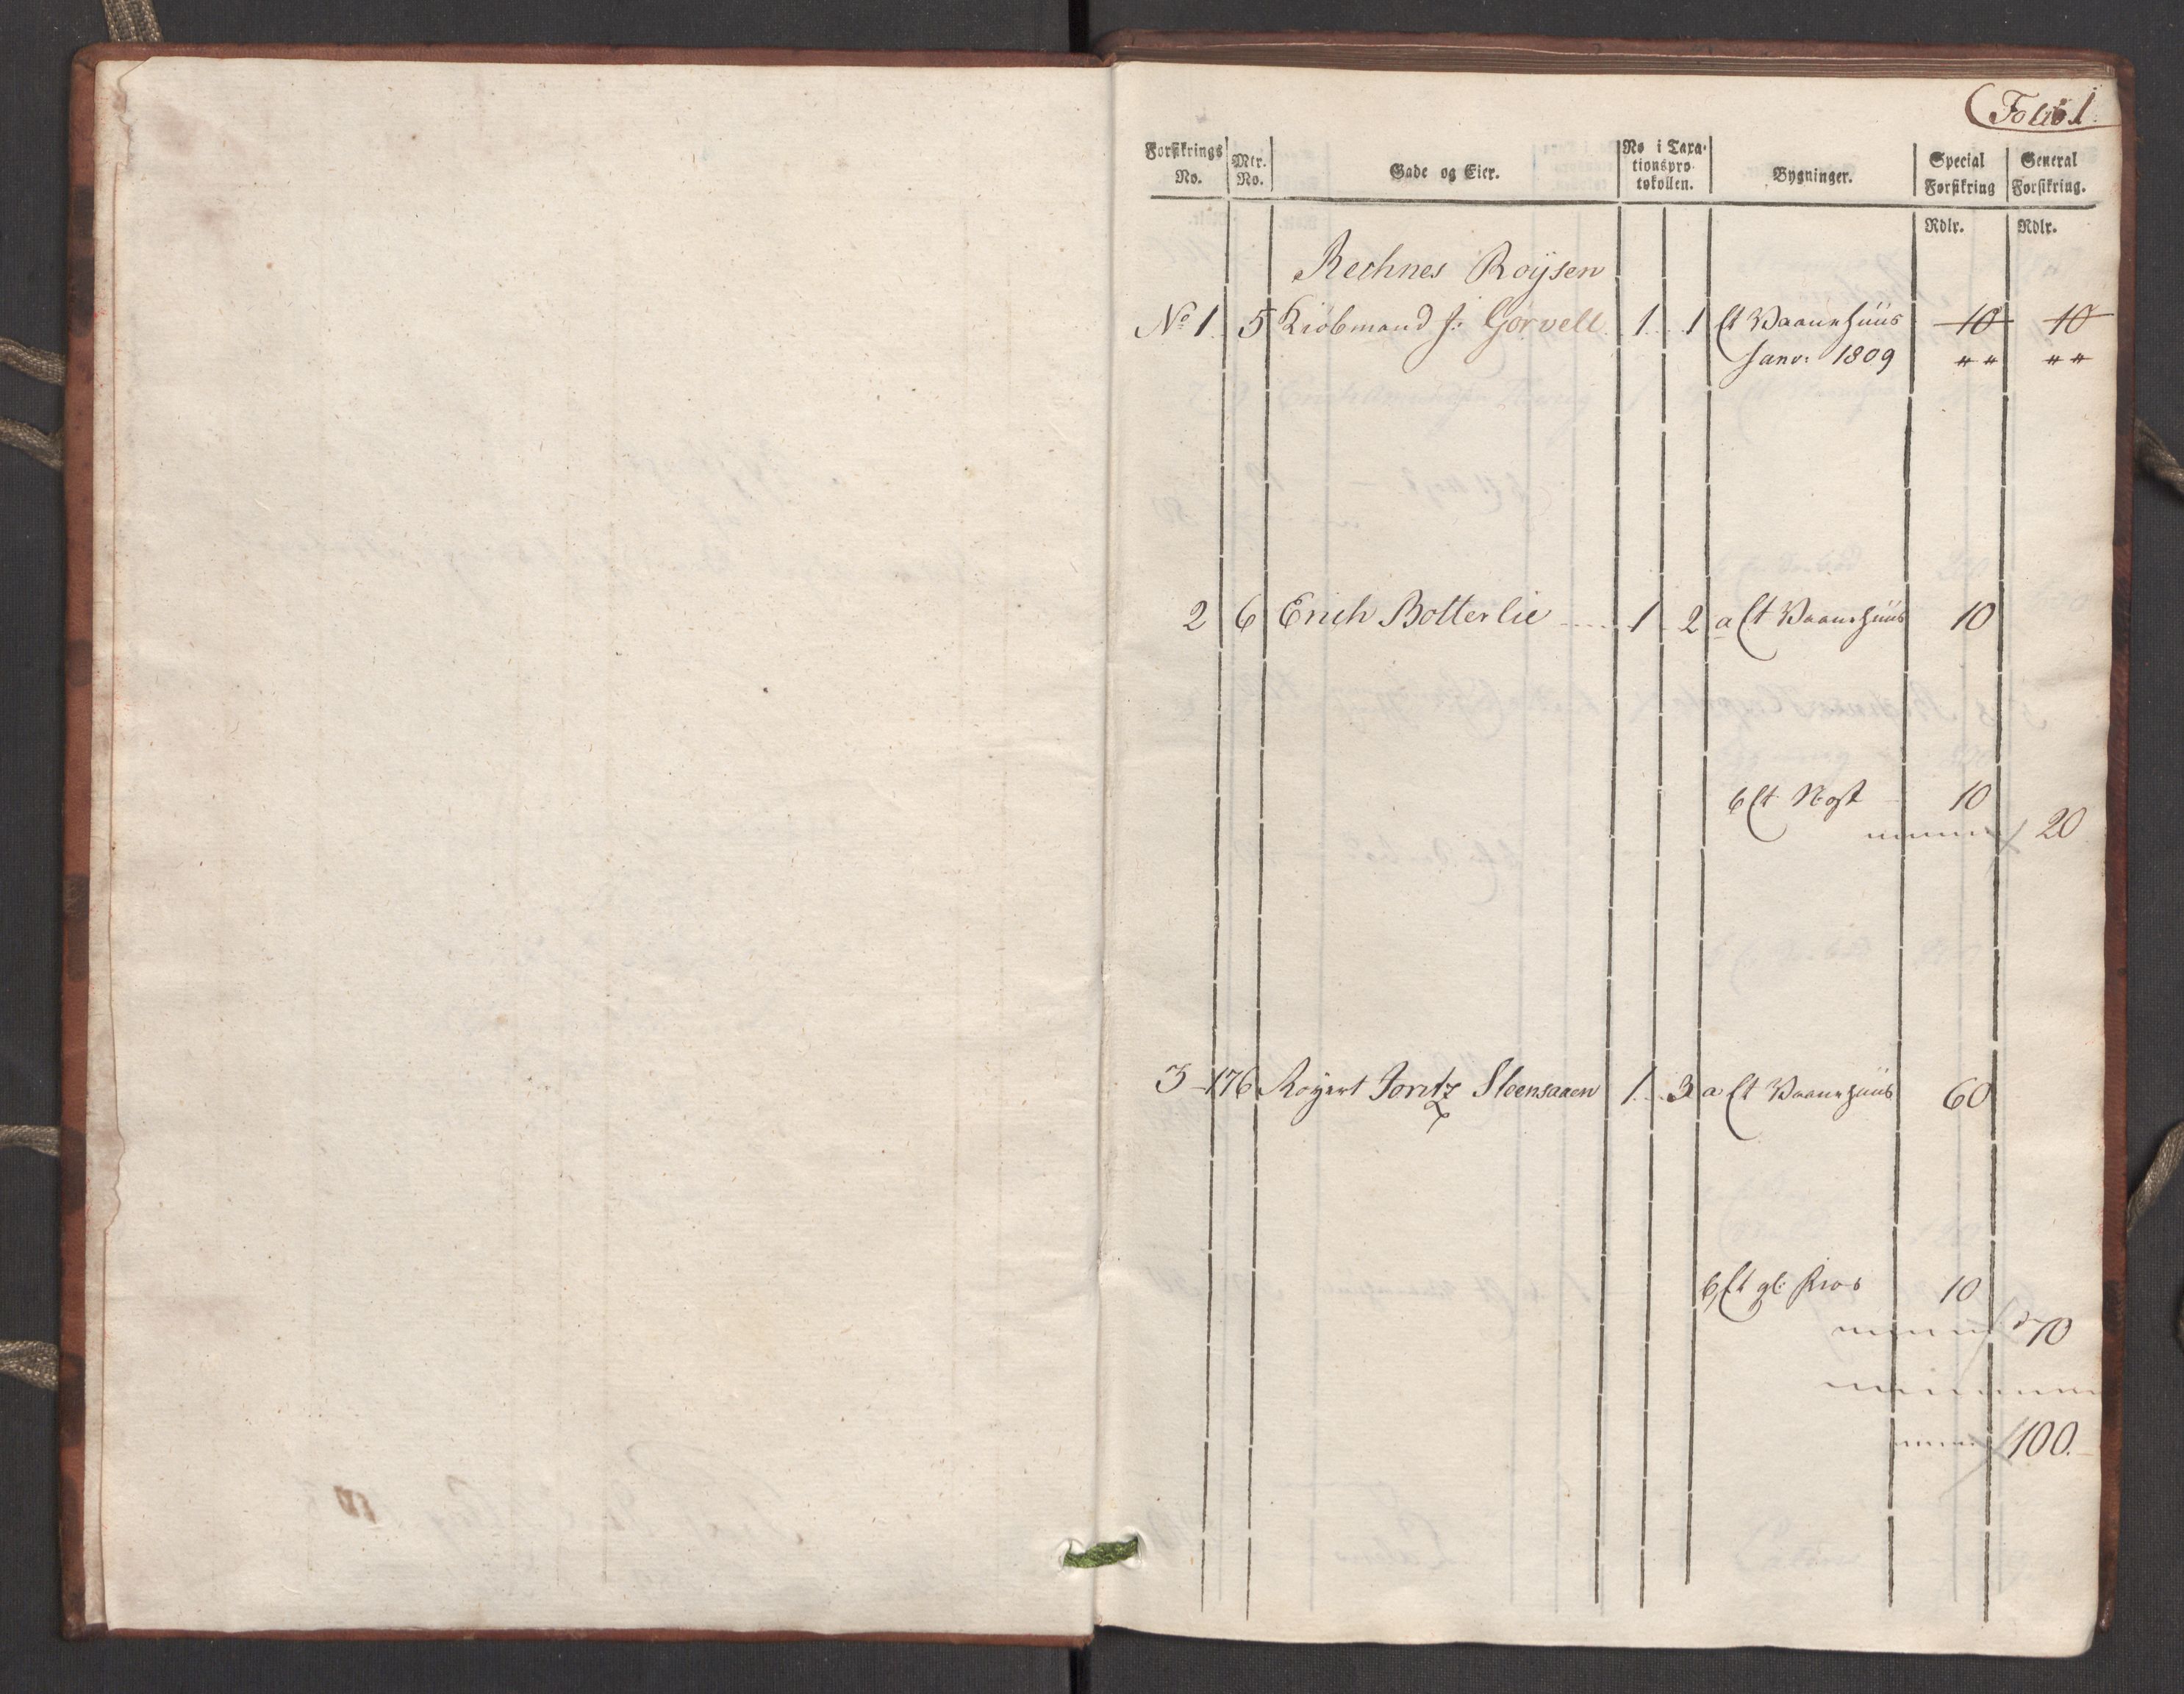 Folio 1.
Forsikrings No. Mtr. No. Gade og Eier. No i Taxationsprotokollen. Bygninger. Special Forsikring General Forsikring.
Rdlr. Rdlr.
Rechnes Roÿsen
No 1. 5 Kiöbmand J: Görvell. 1. 1 Et Vaanhuus 10 10
Janv: 1809 " " " "
2 6 Erich Botterlie 1 2 a Et Vaanhuus 10
b Et Nøst 10
20
3 176 Royert Joritz Steensaaen 1. 3 a Et Vaanhuus 60
b, Et gl: 10
70
100.